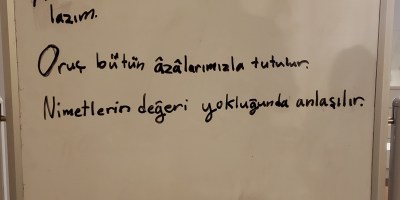 lazım.
Oruç bütün âzâlarımızla tutulur.
Nimetlerin değeri yokluğunda anlaşılır.